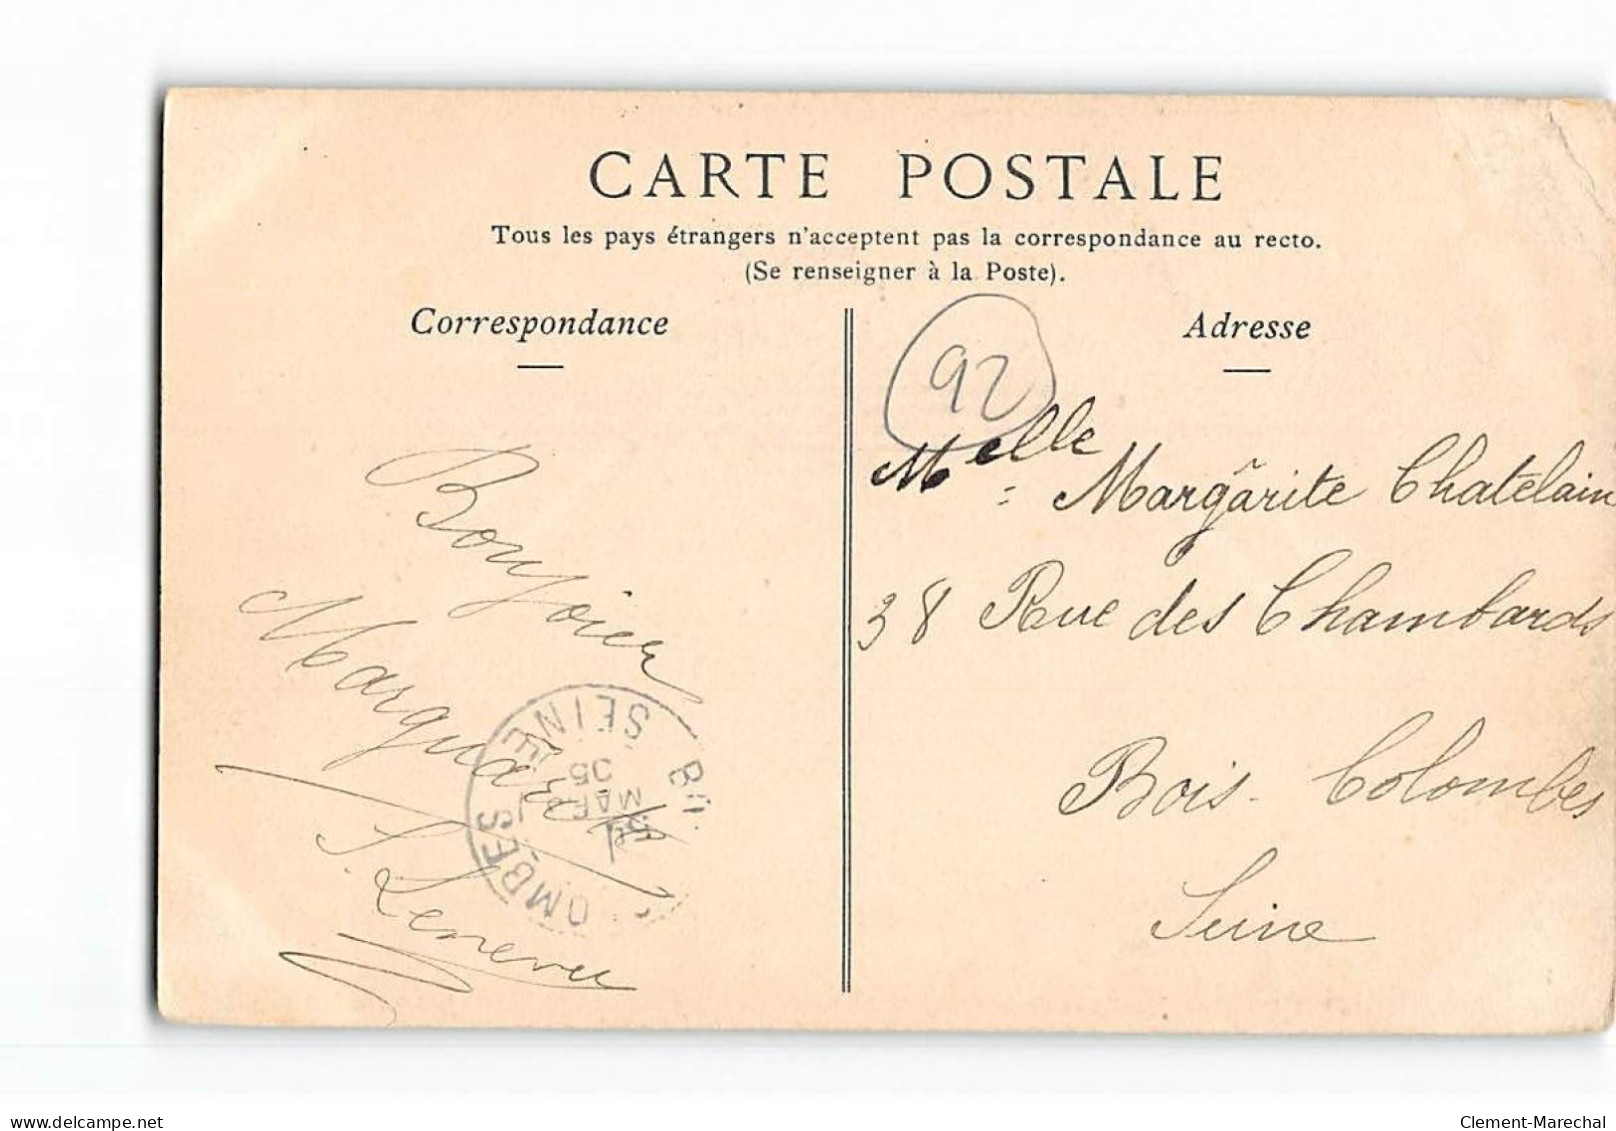 CARTE POSTALE
Tous les pays étrangers n'acceptent pas la correspondance au recto.
(Se renseigner à la Poste).
Correspondance
Adresse
92
Melle Margarite Chatelain
38 Rue des Chambards
Bois-Colombes
Seine
Bonjour
OMBES
SEINE
MAR
05
delcampe.net
Clement-Marechal